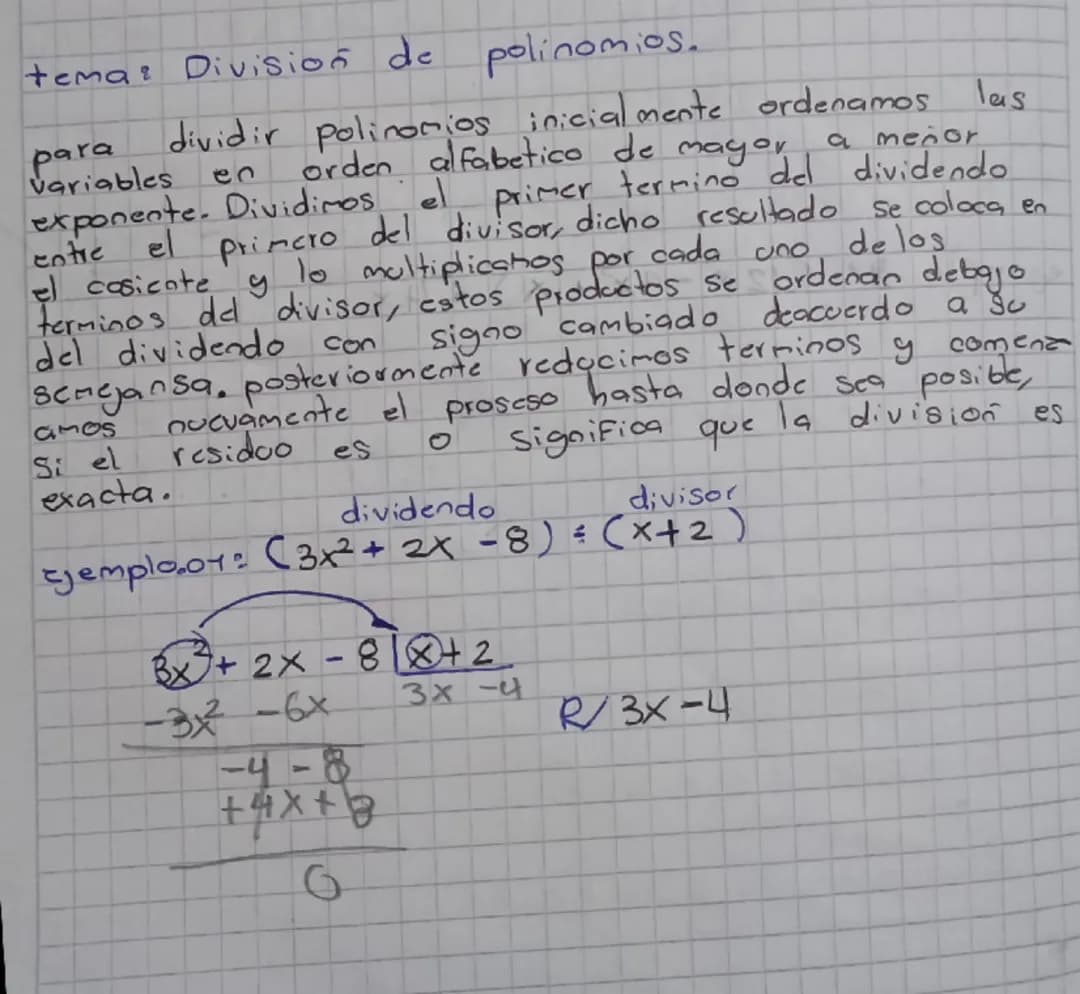 tema: Division de polinomios.
para dividir polinomios inicialmente ordenamos las
variables en orden alfabetico de mayor a menor
exponente. Dividimos el primer termino del dividendo
entre el primero del divisor, dicho resultado se coloca en
el cosiente y lo multiplicamos por cada uno de los
terminos del divisor, estos productos se ordenan debajo
del dividendo con signo cambiado deacuerdo a su
semejansa. posteriormente reducimos terminos y comenz
amos nuevamente el proseso hasta donde sea posible,
si el residuo es 0 significa que la division es
exacta.
dividendo divisor
Ejemplo.01: (3x² + 2x - 8) ÷ (x+2)
3x² + 2x - 8 x + 2
-3x² - 6x 3x - 4
R/ 3x - 4
-4 - 8
+4x + 8
0